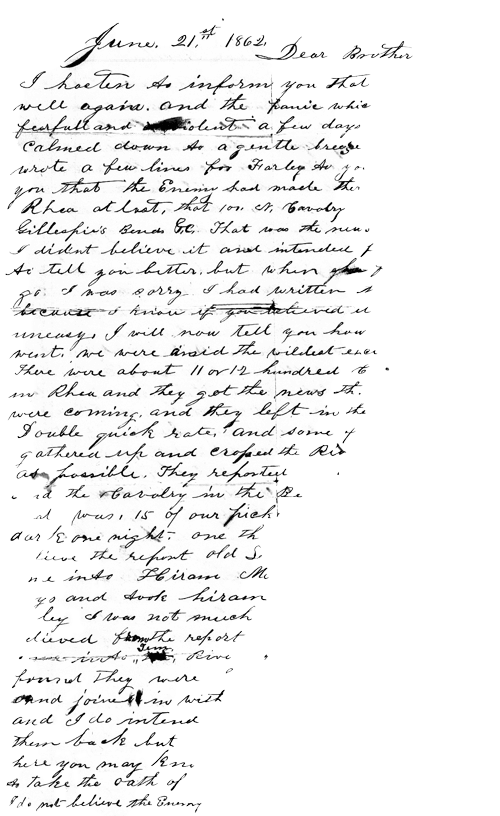 June. 21.st 1862.
Dear Brother
I hasten to inform you that
well again. and the panic whic
fearfull and violent a few days
calmed down to a gentle breeze
wrote a few lines for Farley to yo
you that the Enemy had made the
Rhea at last, that 100 N. Cavalry
Gillespie's Bend &c. That was the new
I didnt believe it and intended f
to tell you better, but when
go. I was sorry I had written
because I know if you believed it
uneasy. I will now tell you how
went. we were amid the wildest exci
There were about 11 or 12 hundred
in Rhea and they got the news th
were coming, and they left in the
Double quick rate, and some
gathered up and crossed the Riv
as possible. They reported
the Cavalry in the Be
was. 15 of our pick
dark one night. one th
lieve the report old S.
into Hiram Mc
and took hiram
ley I was not much
lieved from the report
into Tenn Rive
found they were
and joined in with
and I do intend
them back but
here you may kno
to take the oath of
I do not believe the Enemy